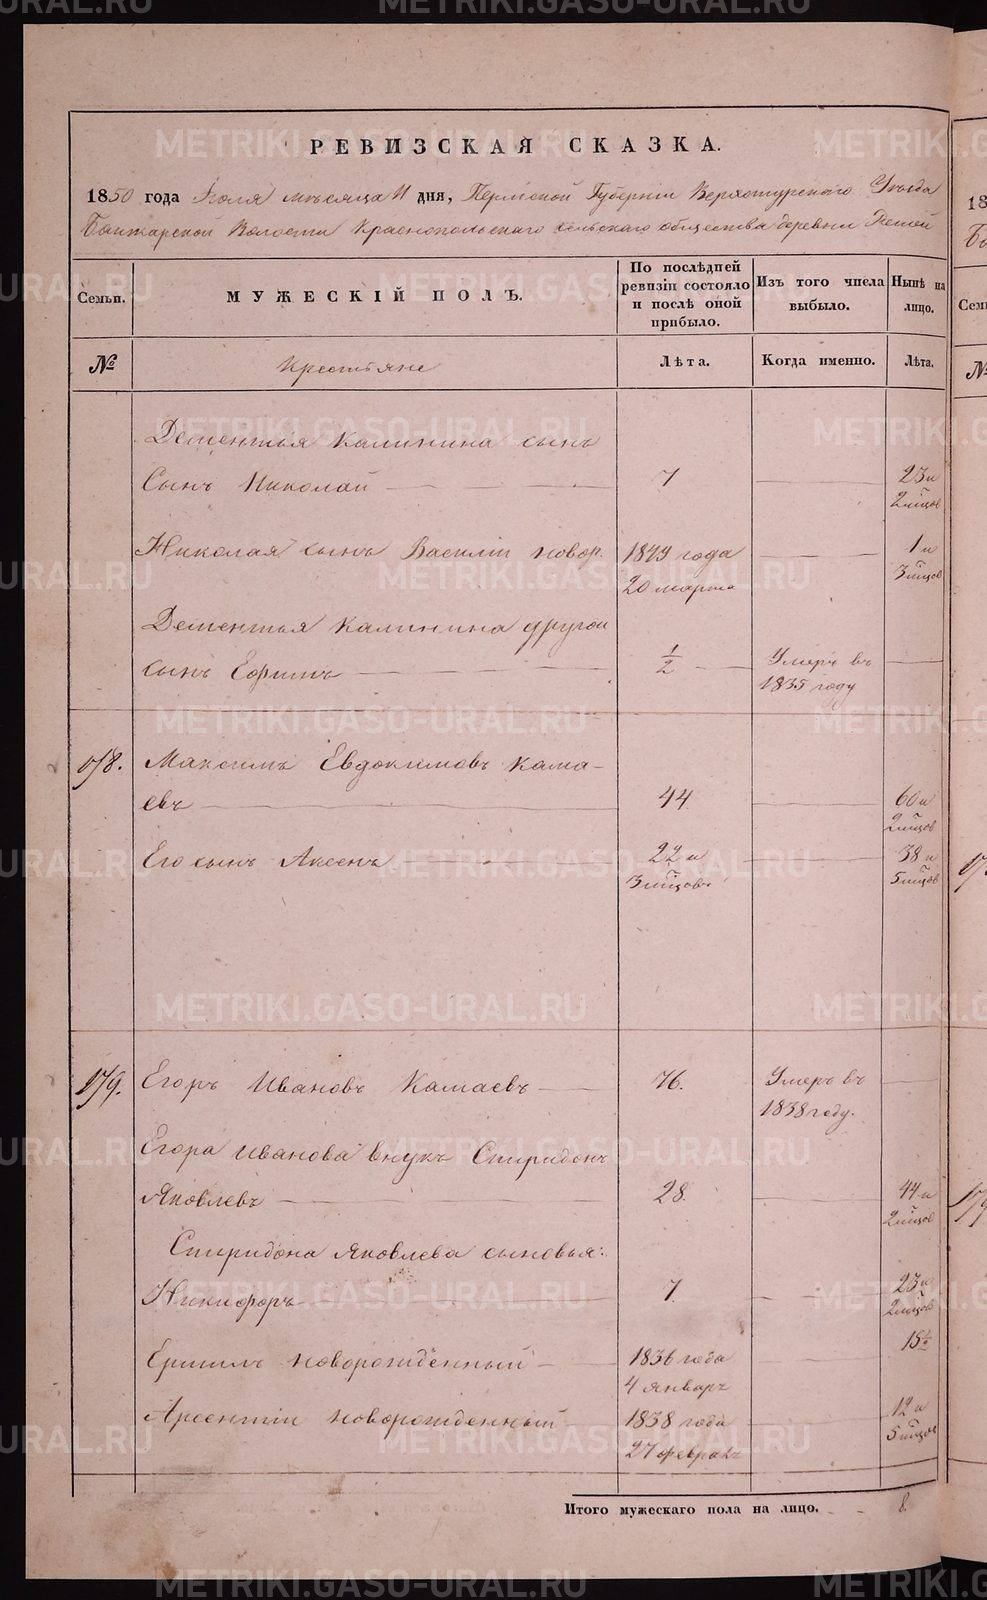 РЕВИЗСКАЯ СКАЗКА.
1850 года Июля месяца 11 дня, Пермской Губернии Верхотурского Уѣзда
Волости Краснопольского сельскаго общества деревни
Семьи.
МУЖЕСКІЙ ПОЛЪ.
По послѣдней ревизіи состояло и послѣ оной прибыло.
Изъ того числа выбыло.
Нынѣ на лицо.
№
Крестьяне
Лѣта.
Когда именно.
Лѣта.
Дементья Калинина сынъ
Сынъ Николай 7 23 и
2 мѣцов
Николая сынъ Василій новор. 1849 года 1 и
20 марта 3 мѣцов
Дементья Калинина другой
сынъ Ефимъ 1/2 Умеръ въ
1835 году
178. Максимъ Евдокимовъ Кама-
евъ 44 60 и
2 мѣцов
Его сынъ Аксенъ 22 и 38 и
3 мѣцовъ 5 мѣцов
179. Егоръ Ивановъ Камаевъ 76. Умеръ въ
1838 году.
Егора Иванова внукъ Спиридонъ
Яковлевъ 28. 44 и
2 мѣцов
Спиридона Яковлева сыновья:
Никифоръ 7 23 и
2 мѣцов
Ермилъ новорожденный 1836 года 15 1/2
4 январъ
Арсентій новорожденный 1838 года 12 и
27 февраля 5 мѣцов
Итого мужескаго пола на лицо. 8.
METRIKI.GASO-URAL.RU